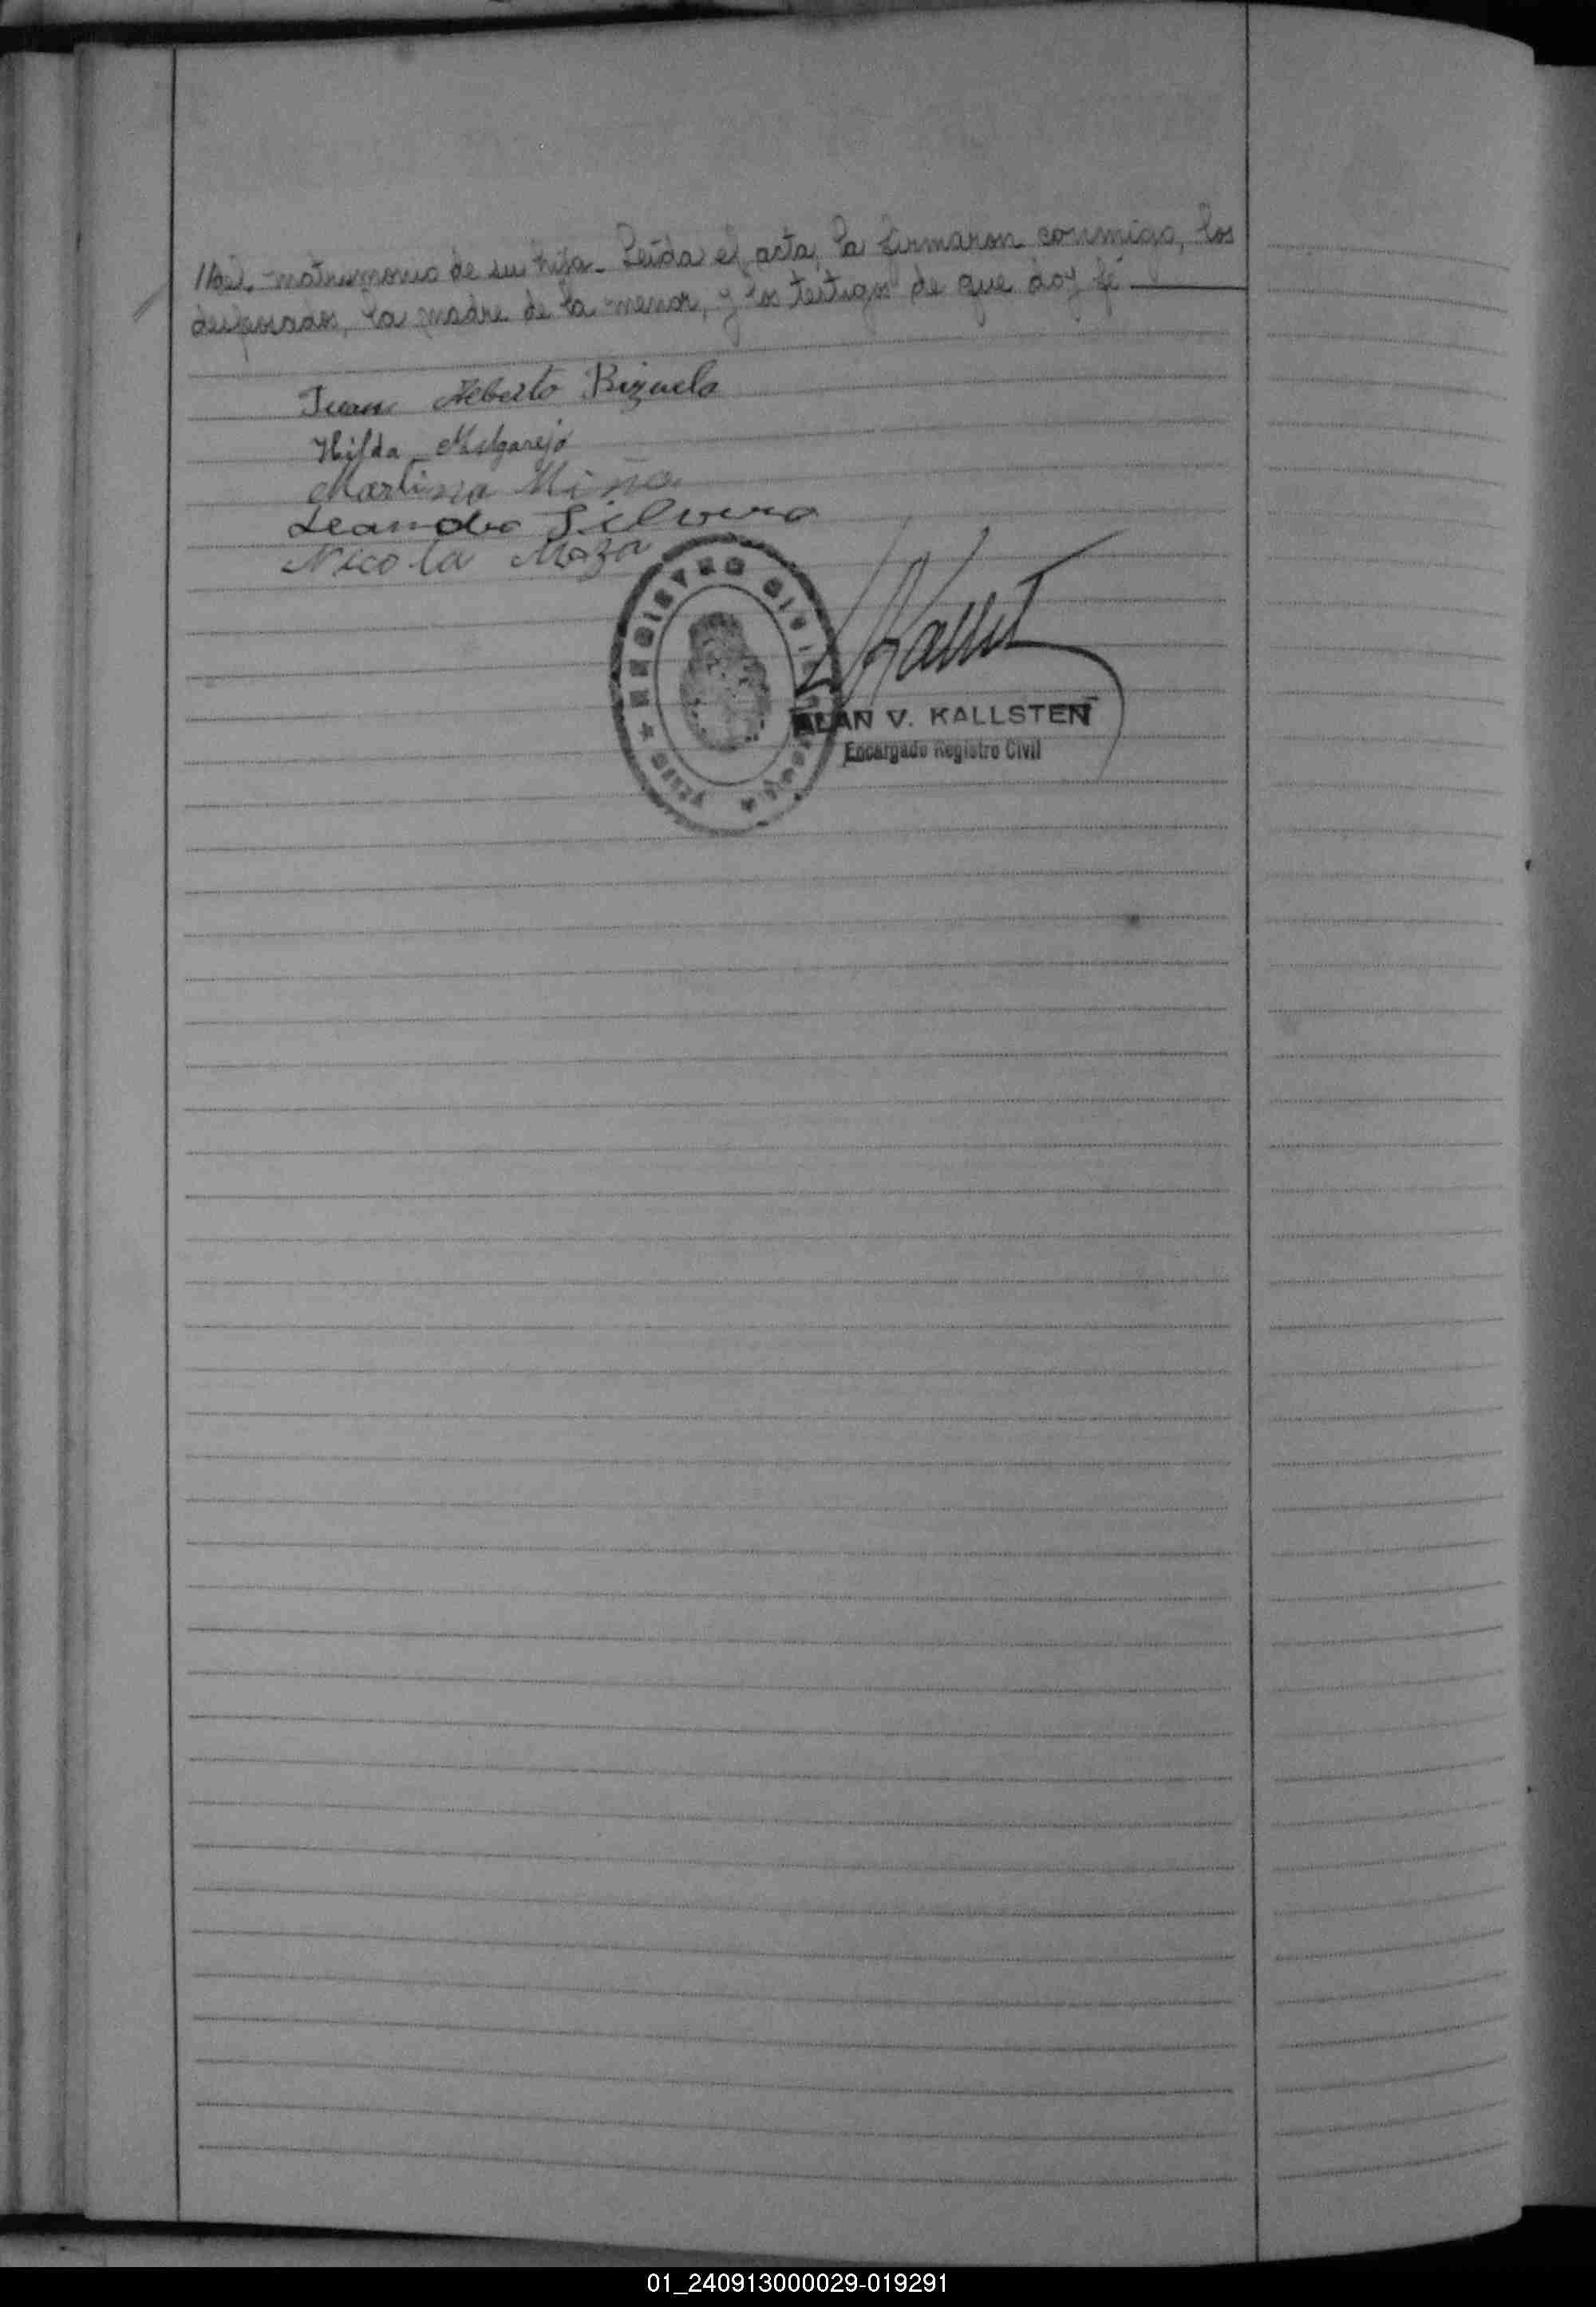 //el matrimonio de su hija. Leída el acta, la firmaron conmigo, los
desposados, la madre de la menor, y los testigos de que doy fé
Juan Alberto Bizuela
Hilda Melgarejo
Martina Miño
Leandro Silvera
Nicola Maza
REGISTRO CIVIL
ALAN V. KALLSTEN
Encargado Registro Civil
01_240913000029-019291